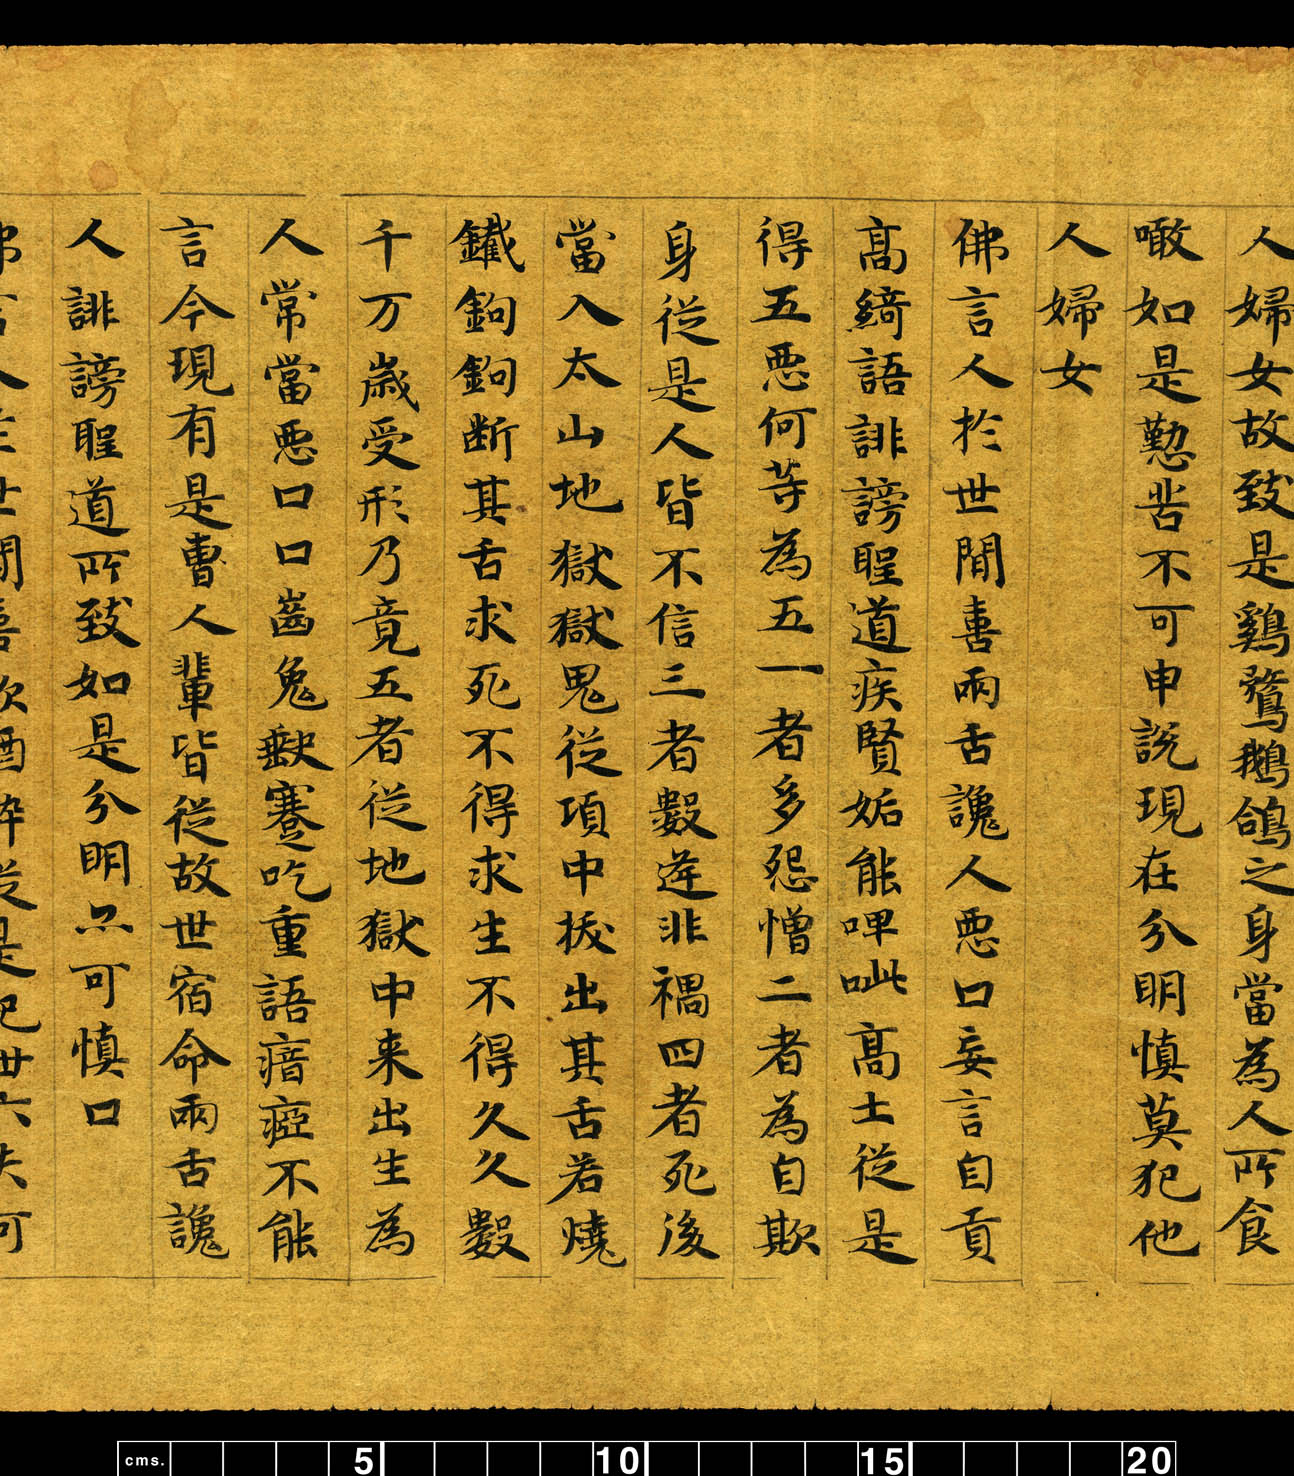 人婦女故致是鷄鶩鵝鴿之身當為人所食
噉如是懃苦不可申説現在分明慎莫犯他
人婦女
佛言人於世間憙兩舌讒人惡口妄言自貢
高綺語誹謗聖道疾賢妬能啤呲高士從是
得五惡何等為五一者多怨憎二者為自欺
身從是人皆不信三者數逄非禍四者死後
當入太山地獄獄鬼從項中拔出其舌若燒
鐵鉤鉤断其舌求死不得求生不得久久數
千万歲受形乃竟五者從地獄中来出生為
人常當惡口口齒兔缺蹇吃重語瘖瘂不能
言今現有是曹人輩皆從故世宿命兩舌讒
人誹謗聖道所致如是分明亦可慎口
佛言人在世間喜飲酒醉從是犯卅六失何
cms. 5 10 15 20